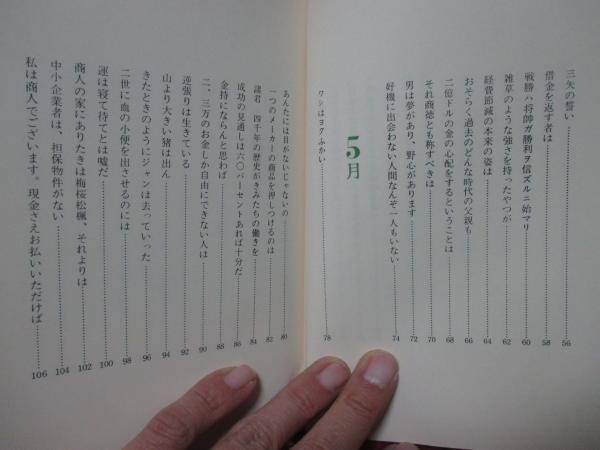 三矢の誓い……56
借金を返す者は……58
戦勝ハ将帥ガ勝利ヲ信ズルニ始マリ……60
雑草のような強さを持ったやつが……62
経費節減の本来の姿は……64
おそらく過去のどんな時代の父親も……66
二億ドルの金の心配をするということは……68
それ商徳とも称すべきは……70
男は夢があり、野心があります……72
好機に出会わない人間なんぞ一人もいない……74
5月
ワシはヨクふかい……78
あんたには目がないじゃないの……80
一つのメーカーの商品を押しつけるのは……82
諸君 四千年の歴史がきみたちの働きを……84
成功の見通しは六〇パーセントあれば十分だ……86
金持にならんと思わば……88
二、三万のお金しか自由にできない人は……90
逆張りは生きている……92
山より大きい猪は出ん……94
きたときのようにジャンは去っていった……96
二世に血の小便を出させるのには……98
運は寝て待てとは嘘だ……100
商人の家にありたきは梅桜松楓、それよりは……102
中小企業者は、担保物件がない……104
私は商人でございます。現金さえお払いいただけば……106